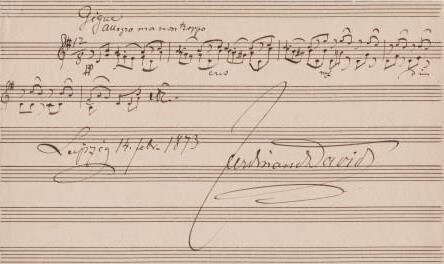 Gigue
allegro ma non troppo
12
8
pp
cres
mf
dim
Leipzig 14. febr. 1873
Ferdinand David